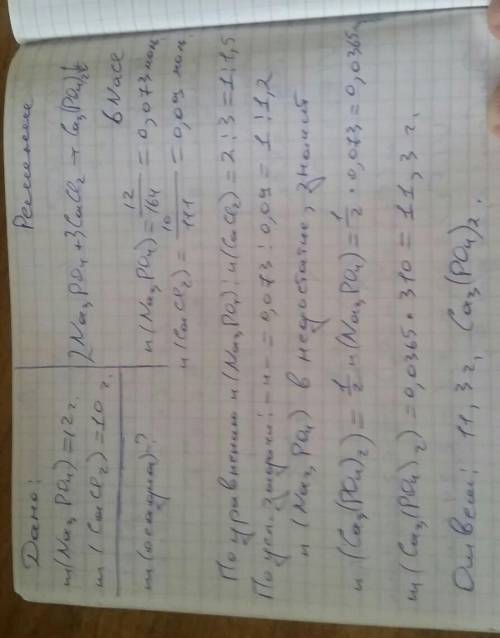 Дано: Решение
m(Na₃PO₄)=12 г.
m(CaCl₂)=10 г.
m(осадка)?
2Na₃PO₄+3CaCl₂ → Ca₃(PO₄)₂↓
6NaCl
n(Na₃PO₄)=12/164=0,073 моль
n(CaCl₂)=10/111=0,09 моль
По уравнению n(Na₃PO₄):n(CaCl₂)=2:3=1:1,5
По усл. задачи: -//- = 0,073:0,09=1:1,2
n(Na₃PO₄) в недостатке, значит
n(Ca₃(PO₄)₂)=1/2 n(Na₃PO₄)=1/2·0,073=0,0365
m(Ca₃(PO₄)₂)=0,0365·310=11,3 г.
Ответ: 11,3 г. Ca₃(PO₄)₂.